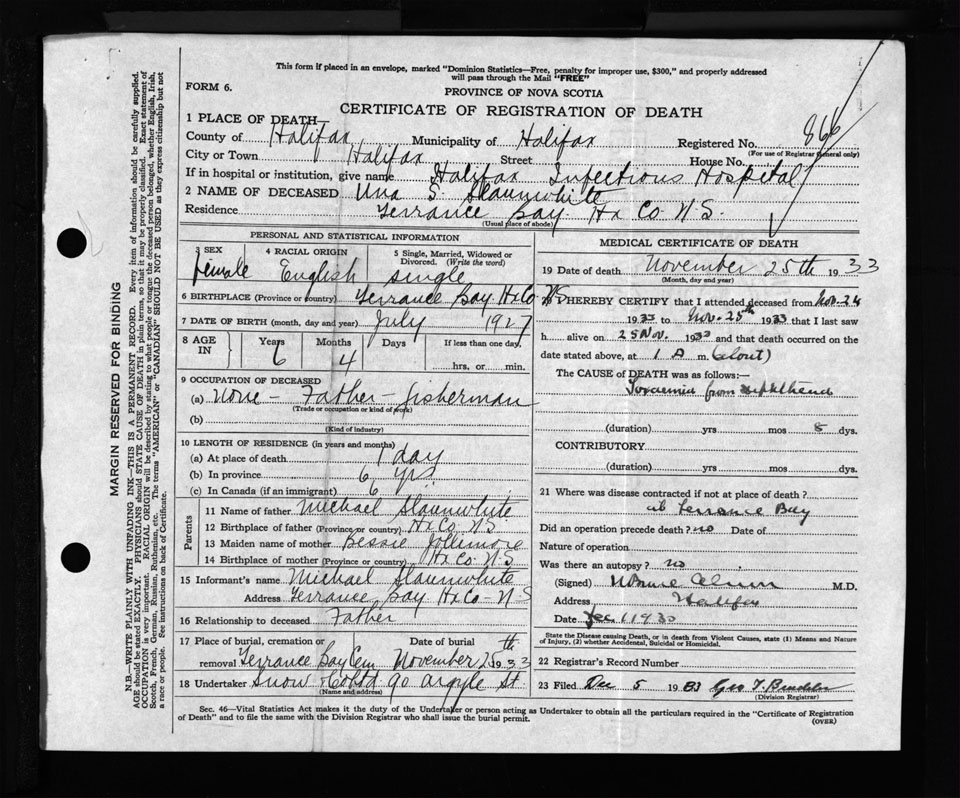 This form if placed in an envelope, marked "Dominion Statistics—Free, penalty for improper use, $300," and properly addressed
will pass through the Mail "FREE"
FORM 6.
PROVINCE OF NOVA SCOTIA
CERTIFICATE OF REGISTRATION OF DEATH
1 PLACE OF DEATH—
County of Halifax Municipality of Halifax Registered No. 866
(For use of Registrar General only)
City or Town Halifax Street House No.
If in hospital or institution, give name Halifax Infectious Hospital
2 NAME OF DECEASED Una S. Slaunwhite
Residence Terrance Bay Hx Co. N.S.
(Usual place of abode)
PERSONAL AND STATISTICAL INFORMATION
3 SEX 4 RACIAL ORIGIN 5 Single, Married, Widowed or Divorced. (Write the word)
Female English single
6 BIRTHPLACE (Province or country) Terrance Bay Hx Co NS
7 DATE OF BIRTH (month, day and year) July 1927
8 AGE IN Years Months Days If less than one day,
6 4 hrs. or min.
9 OCCUPATION OF DECEASED
(a) None - Father - fisherman
(Trade or occupation or kind of work)
(b)
(Kind of industry)
10 LENGTH OF RESIDENCE (in years and months)
(a) At place of death 1 day
(b) In province 6 yrs
(c) In Canada (if an immigrant) 6 "
Parents
11 Name of father Michael Slaunwhite
12 Birthplace of father (Province or country) Hx Co. N.S.
13 Maiden name of mother Bessie Jollimore
14 Birthplace of mother (Province or country) Hx Co. N S
15 Informant's name Michael Slaunwhite
Address Terrance Bay Hx Co- N S
16 Relationship to deceased Father
17 Place of burial, cremation or Date of burial
removal Terrance Bay Cem November 25th 1933
18 Undertaker Snow & Co Ltd 90 Argyle St.
(Name and address)
MEDICAL CERTIFICATE OF DEATH
19 Date of death November 25th 1933
(Month, day and year)
I HEREBY CERTIFY that I attended deceased from Nov. 24
1933 to Nov. 25th 1933 that I last saw
h alive on 25 Nov. 1933 and that death occurred on the
date stated above, at 1 A m. (about)
The CAUSE OF DEATH was as follows:—
Toxaemia from diphtheria
(duration) yrs mos 8 dys.
CONTRIBUTORY
(duration) yrs mos dys.
21 Where was disease contracted if not at place of death?
at Terrance Bay
Did an operation precede death? no Date of
Nature of operation
Was there an autopsy? no
(Signed) M.D.
Address Halifax
Date Dec 1 1933
State the Disease causing Death, or in death from Violent Causes, state (1) Means and Nature
of Injury, (2) whether Accidental, Suicidal or Homicidal.
22 Registrar's Record Number
23 Filed Dec 5 1933 Geo
(Division Registrar)
Sec. 46—Vital Statistics Act makes it the duty of the Undertaker or person acting as Undertaker to obtain all the particulars required in the "Certificate of Registration
of Death" and to file the same with the Division Registrar who shall issue the burial permit.
(OVER)
MARGIN RESERVED FOR BINDING
N.B.—WRITE PLAINLY WITH UNFADING INK—THIS IS A PERMANENT RECORD. Every item of information should be carefully supplied.
AGE should be stated EXACTLY. PHYSICIANS should STATE CAUSE OF DEATH in plain terms, so that it may be properly classified. Exact statement of
OCCUPATION is very important. RACIAL ORIGIN will be described by stating to what people or tongue the deceased person belonged, whether English, Irish,
Scotch, French, German, Russian, Ruthenian, etc. The terms "AMERICAN" or "CANADIAN" SHOULD NOT BE USED as they express citizenship but not
a race or people. See instructions on back of Certificate.